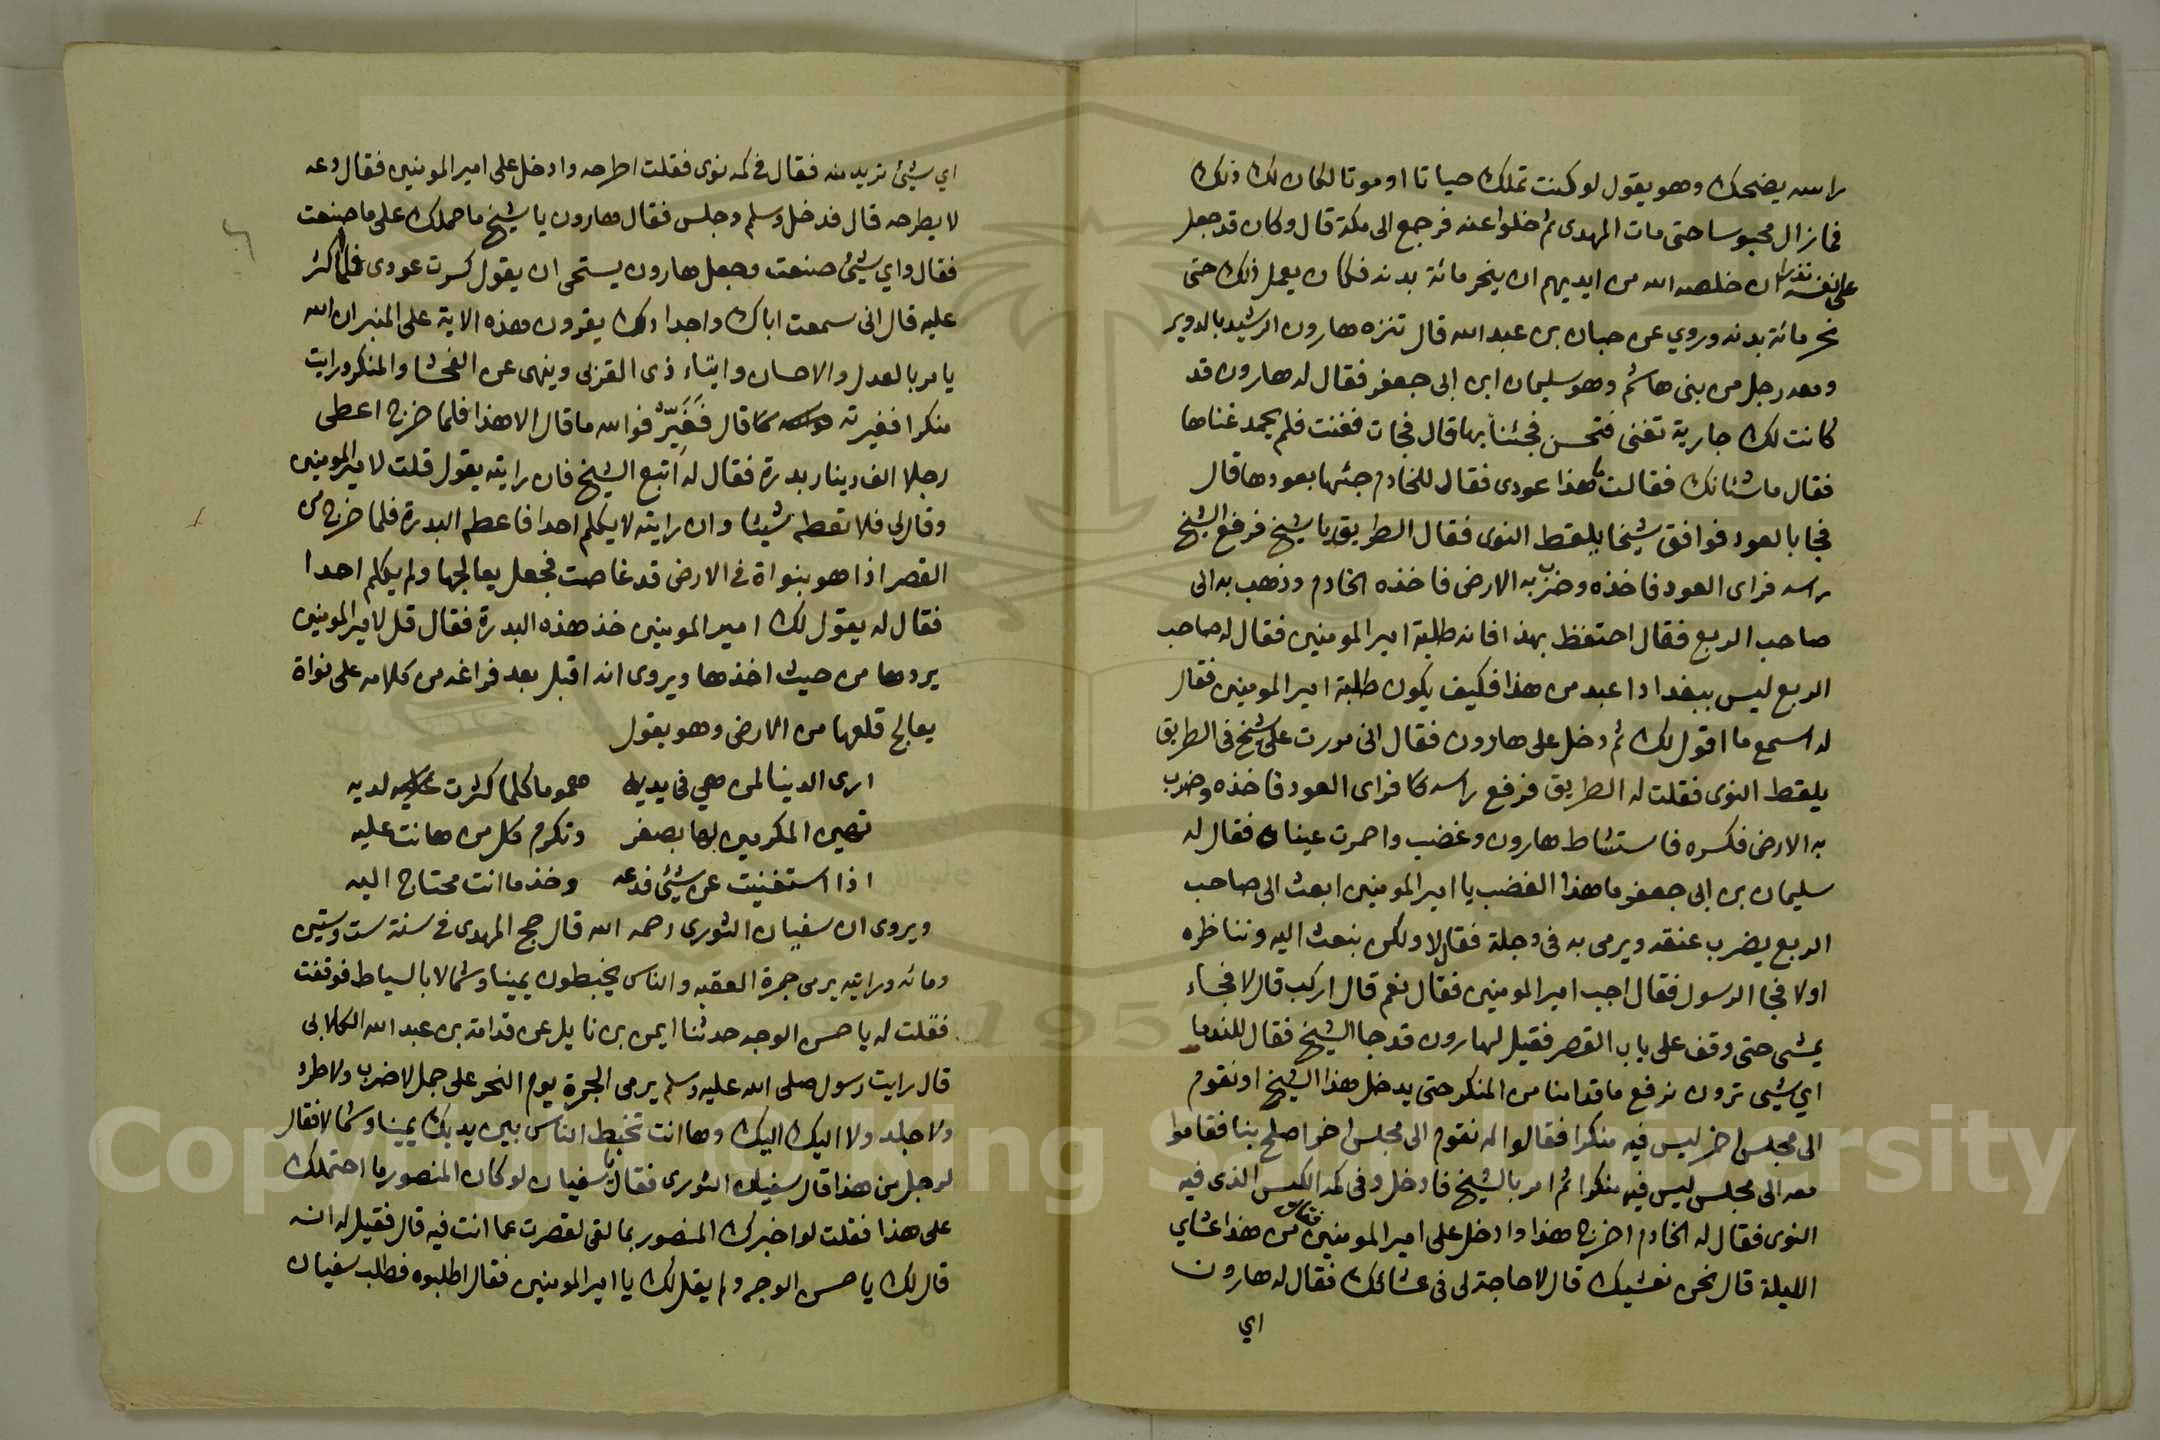 راسه يضحك وهو يقول لو كنت تملك حياتا او موتا لكان لك ذلك
فما زال محبوسا حتى مات المهدى ثم خلوا عنه فرجع الى مكة قال وكان قد جعل
على نفسه نذرا ان خلصه الله من ايديهم ان ينحر مائة بدنه فكان يعمل ذلك حتى
نحر مائة بدنه وروي عن حبان بن عبد الله قال تنزه هارون الرشيد بالدوير
ومعه رجل من بنى هاشم وهو سليمان ابن ابى جعفر فقال له هارون قد
كانت لك جارية تغنى فتحسن فجئنا بها قال فجات فغنت فلم يحمد غناها
فقال ما شانك فقالت ما هذا عودى فقال للخادم جئها بعودها قال
فجا بالعود فوافق شيخا يلقط النوى فقال الطريق يا شيخ فرفع الشيخ
راسه فراى العود فاخذه وضرب به الارض فاخذه الخادم وذهب به الى
صاحب الربع فقال احتفظ بهذا فانه طلبة امير المومنين فقال له صاحب
الربع ليس ببغدادا عبد من هذا فكيف يكون طلبة امير المومنين فقال
له اسمع ما اقول لك ثم دخل على هارون فقال انى مررت على شيخ فى الطريق
يلقط النوى فقلت له الطريق فرفع راسه كا فراى العود فاخذه وضرب
به الارض فكسره فاستشاط هارون وغضب واحمرت عيناه فقال له
سليمان بن ابى جعفر ما هذا الغضب يا امير المومنين ابعث الى صاحب
الربع يضرب عنقه ويرمى به فى دجلة فقال لا ولكن بنعث اليه ونناظره
اولا فجا الرسول فقال اجب امير المومنين فقال نعم قال اركب قال لا فجاء
يمشى حتى وقف على باب القصر فقيل لهارون قد جا الشيخ فقال للندما
اي شيى ترون نرفع ما قدامنا من المنكر حتى يدخل هذا الشيخ او نقوم
الى مجلس اخر ليس فيه منكرا فقالوا له نقوم الى مجلس اخر اصلح بنا فقاموا
معه الى مجلس ليس فيه منكرا ثم امر بالشيخ فادخل وفى كمه الكيس الذى فيه
النوى فقال له الخادم اخرج هذا وادخل على امير المومنين فقال من هذا عشاي
الليلة قال نحن نعشيك قال لا حاجة لى فى عشائك فقال له هارون
اي
اي شيئ تريد منه فقال فى كمه نوى فقلت اطرحه وادخل على امير المومنين فقال دعه
لا يطرحه قال فدخل وسلم وجلس فقال هارون يا شيخ ما حملك على ما صنعت
فقال واي شيئ صنعت وجعل هارون يستحى ان يقول كسرت عودى فلما اكثر
عليه قال انى سمعت اباك واجدادك يقرون هذه الاية على المنبر ان الله
يامر بالعدل والاحسان وايتاء ذى القربى وينهى عن الفحشا والمنكر ورايت
منكرا فغيرته قال فَغَيِّره فوالله ما قال الا هذا فلما خرج اعطى
رجلا الف دينار بدرة فقال له اتبع الشيخ فان رايته يقول قلت لامير المومنين
وقال لى فلا تعطه شيئا وان رايته لا يكلم احدا فاعطه البدرة فلما خرج من
القصر اذا هو بنواة فى الارض قد غاصت فجعل يعالجها ولم يكلم احدا
فقال له يقول لك امير المومنين خذ هذه البدرة فقال قل لامير المومنين
يردها من حيث اخذها ويروى انه اقبل بعد فراغه من كلامه على نواة
يعالج قلعها من الارض وهو يقول
ارى الدنيا لمن هي فى يديه هموما كلما كثرت لديه
تهين المكرمين لها بصغر وتكرم كل من هانت عليه
اذا استغنيت عن شيئ فدعه وخذ ما انت محتاج اليه
ويروى ان سفيان الثورى رحمه الله قال حج المهدى فى سنة ست وستين
ومائه ورايته يرمى جمرة العقبه والناس يخبطون يمينا وشمالا بالسياط فوقفت
فقلت له يا حسن الوجه حدثنا ايمن بن نايل عن قدامة بن عبد الله الكلابى
قال رايت رسول صلى الله عليه وسلم يرمى الجمرة يوم النحر على جمل لا ضرب ولا طرد
ولا جلد ولا اليك اليك وها انت تخبط الناس بين يديك يمينا وشمالا فقال
لرجل من هذا قال سفيان الثورى فقال يا سفيان لو كان المنصور ما احتملك
على هذا فقلت لو اخبرك المنصور بما لقى لقصرت عما انت فيه قال فقيل له انه
قال لك يا حسن الوجه ولم يقل لك يا امير المومنين فقال اطلبوه فطلب سفيان
Copyright © King Saud University
1957